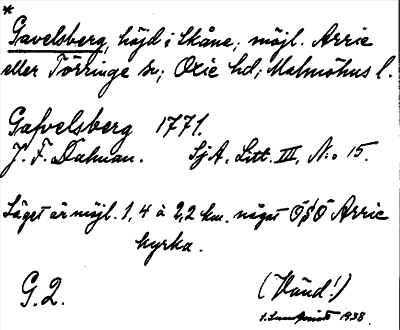 *
Gavelsberg, höjd i Skåne; möjl. Arrie
eller Törringe sn; Oxie hd; Malmöhus l.
Gafvelsberg 1771.
J. F. Dalman. SjA. Litt. III, N:o 15.
Läget är möjl. 1,4 à 2,2 km. något Ö§O Arrie
kyrka.
G.2. (Vänd!)
1938.